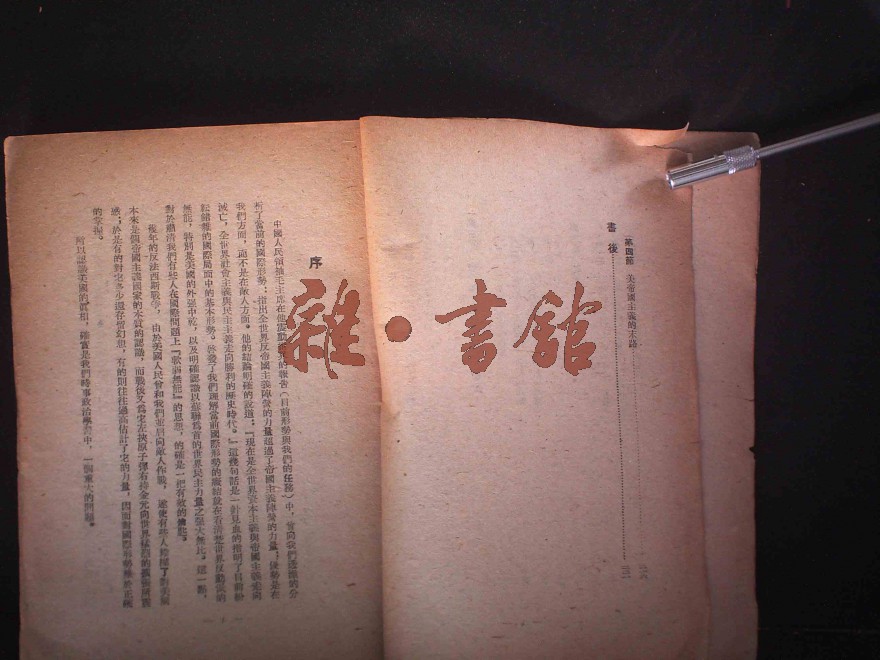 第四節　美帝國主義的末路
書後
雜·書館
序
中國人民領袖毛主席在他
的報告（目前形勢與我們的任務）中，曾向我們透澈的分
析了當前的國際形勢；指出全世界反帝國主義陣營的力量超過了帝國主義陣營的力量；優勢是在
我們方面，而不是在敵人方面。他的結論明確的說道：『現在是全世界資本主義與帝國主義走向
滅亡，全世界社會主義與民主主義走向勝利的歷史時代。』這幾句話是一針見血的指明了目前紛
紜錯雜的國際局面中的基本形勢。啓發了我們理解當前國際形勢的
無能，特別是美國的外強中乾，以及明確認識以蘇聯爲首的世界民主力量之强大無比。這一點，
對於肅清我們有些人在國際問題上『軟弱無能』的思想，的確是一把有效的
幾年的反法西斯戰爭，由於美國人民曾和我們並肩向敵人作戰，遂使有些人
本來是個帝國主義國家的本質的認識，而戰後又
惑；於是有的對它多少還存留幻想，有的則往往過高估計了它的力量，因而對國際形勢
的掌握。
所以認識美國的眞相，確實是我們時事政治學習中，一個重大的問題。